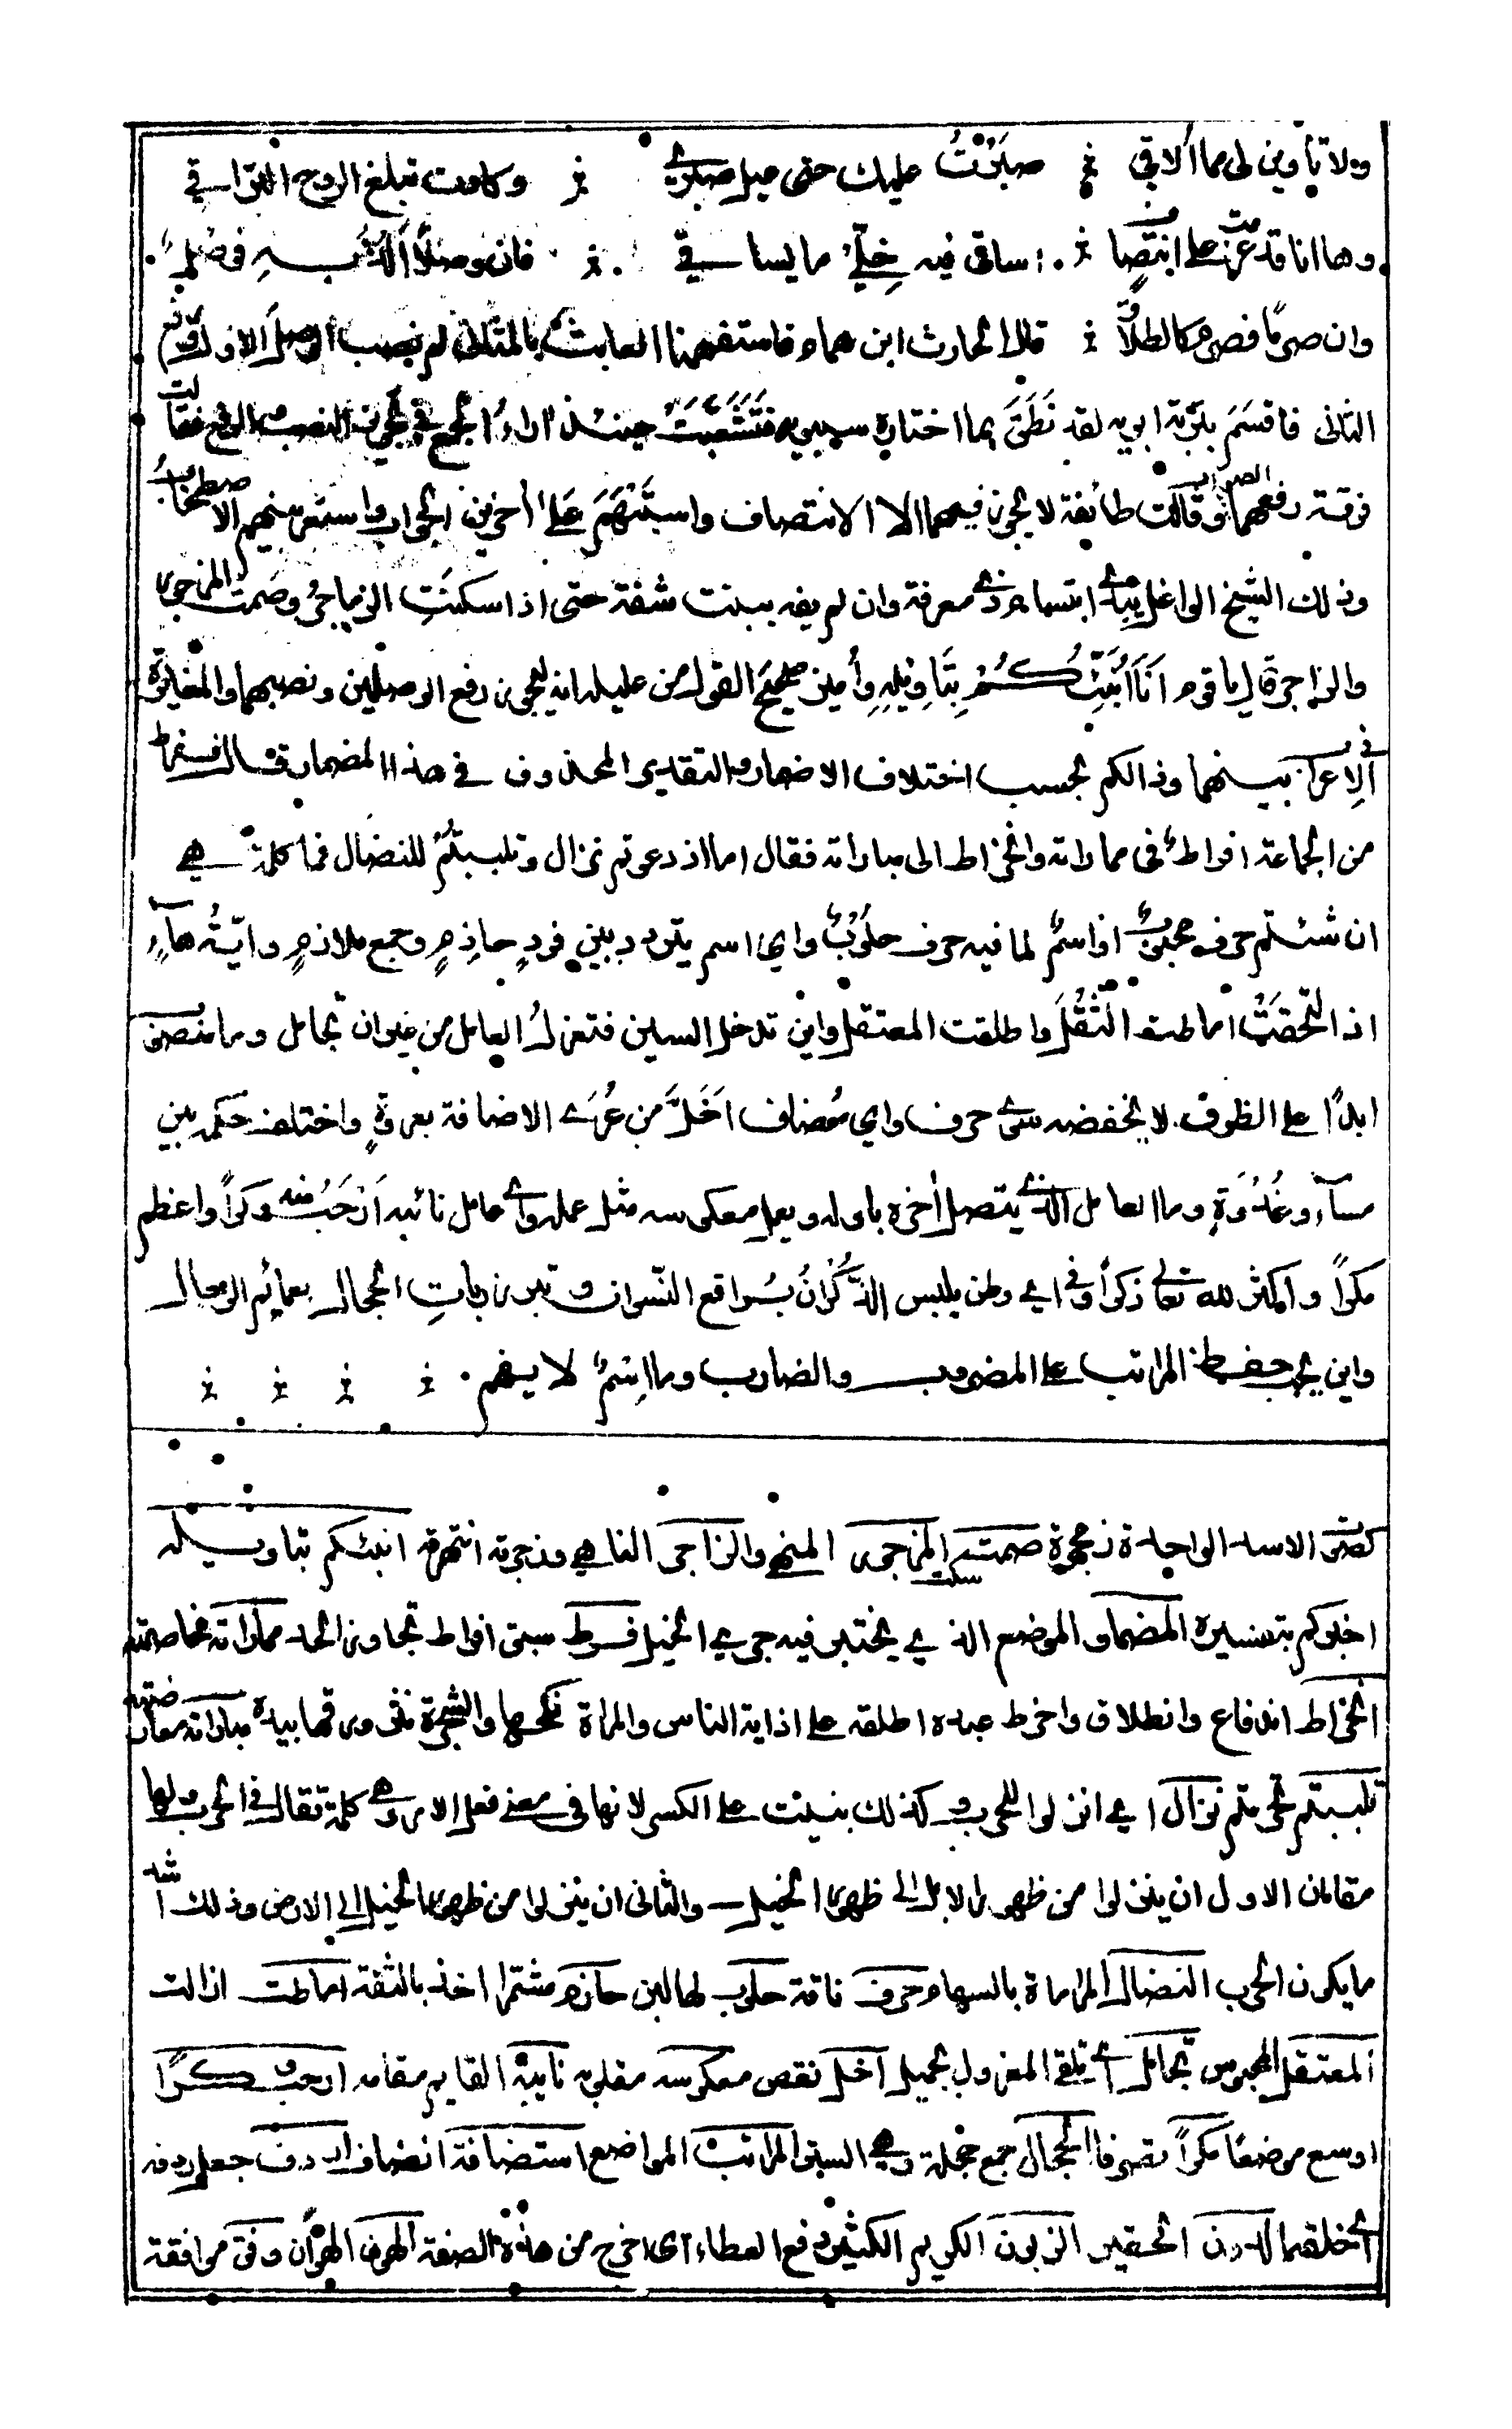 ولا تأوين لي مما ألاقي ⁘ صبرت عليك حتى عيل صبري ⁘ وكادت تبلغ الروح التراقي
وها انا قد عزمت على انتصاف ⁘ أساقي فيه خلي ما يساقي ⁘ فان وصلا ألذ به فوصل
وان صرما فصرم كالطلاق ⁘ قال الحارث ابن همام فاستفهمنا العابث بالمثاني لم نصب الوصل الاول ورفع
الثاني فاقسم بتربة ابويه لقد نطق بما اختاره سيبويه فتشعبت حينئذ اراء الجمع في تجويز النصب والرفع فقالت
فرقة رفعهما الصواب وقالت طائفة لا يجوز فيهما الا الانتصاب واستبهم على أخرين الجواب واستعر بينهم الاصطخاب
وذلك الشيخ الواغل يبدي ابتسام ذي معرفة وان لم يفه ببنت شفة حتى اذا سكنت الزماجر وصمت المزجور
والزاجر قال يا قوم انا أنبئكم بتأويله وأميز صحيح القول من عليله انه ليجوز رفع الوصلين ونصبهما والمغايرة
في الاعراب بينهما وذالكم بحسب اختلاف الاضمار والتقدير المحذوف في هذا المضمار قال ففرط
من الجماعة افراط في مماراته وانخراط الى مباراته فقال اما اذ دعوتم نزال وتلببتم للنضال فما كلمة هي
ان شئتم حرف محبوب او اسم لما فيه حرف حلوب واي اسم يتردد بين فرد حازم وجمع ملازم واية هاء
اذا التحقت اماطت الثقل واطلقت المعتقل واين تدخل السين فتعزل العامل من غير ان تجامل وما منصوب
ابدا على الظرف لا يخفضه سوى حرف واي مضاف اخل من عرى الاضافة بعروة واختلف حكمه بين
مساء وغدوة وما العامل الذي يتصل أخره باوله ويعمل معكوسه مثل عمله واي عامل نائبه ارحب منه وكرا واعظم
مكرا واكثر لله تعالى ذكرا وفي اي وطن يلبس الذكران براقع النسوان وتبرز ربات الحجال بعمائم الرجال
واين يجب حفظ المراتب على المضروب والضارب وما اسم لا يفهم ⁘ ⁘ ⁘ ⁘
كصوت الاسد الواحدة زمجرة صمت سكت المزجور المنهر والزاجر الناهي وزجرته انتهرته انبئكم بتأويله
اخبركم بتفسيره المضمار الموضع الذي يختبر فيه جري الخيل فرط سبق افراط تجاوز الحد مماراته مخاصمته
انخراط اندفاع وانطلاق واخرط عبده اطلقه على اذاية الناس والمراة نكحها والشجرة نثر ورقها بيده مباراته معارضته
تلببتم تحزمتم نزال اي انزلوا للحرب وكذلك بنيت على الكسر لانها في معنى فعل الامر وهي كلمة تقال في الحرب ولها
مقامان الاول ان ينزلوا من ظهور الابل الى ظهور الخيل والثاني ان ينزلوا من ظهور الخيل الى الارض وذلك اشد
ما يكون الحرب النضال المراماة بالسهام حرف ناقة حلوب لها لبن حازم مشتمر اخذ بالثقة اماطت ازالت
المعتقل المحبوس تجامل اي تلقى المعزول بجميل اخل نقص معكوسه مقلوبه نايبه القايم مقامه ارحب وكرا
اوسع موضعا مكرا تصرفا الحجال جمع حجلة وهي الستر المراتب المواضع استضافة انضاف اردف جعل ردفه
الدون الحقير الزبون الكريم الكثير دفع العطاء اى اخرج من هذه الصفة الهون الهوان وفق موافقة